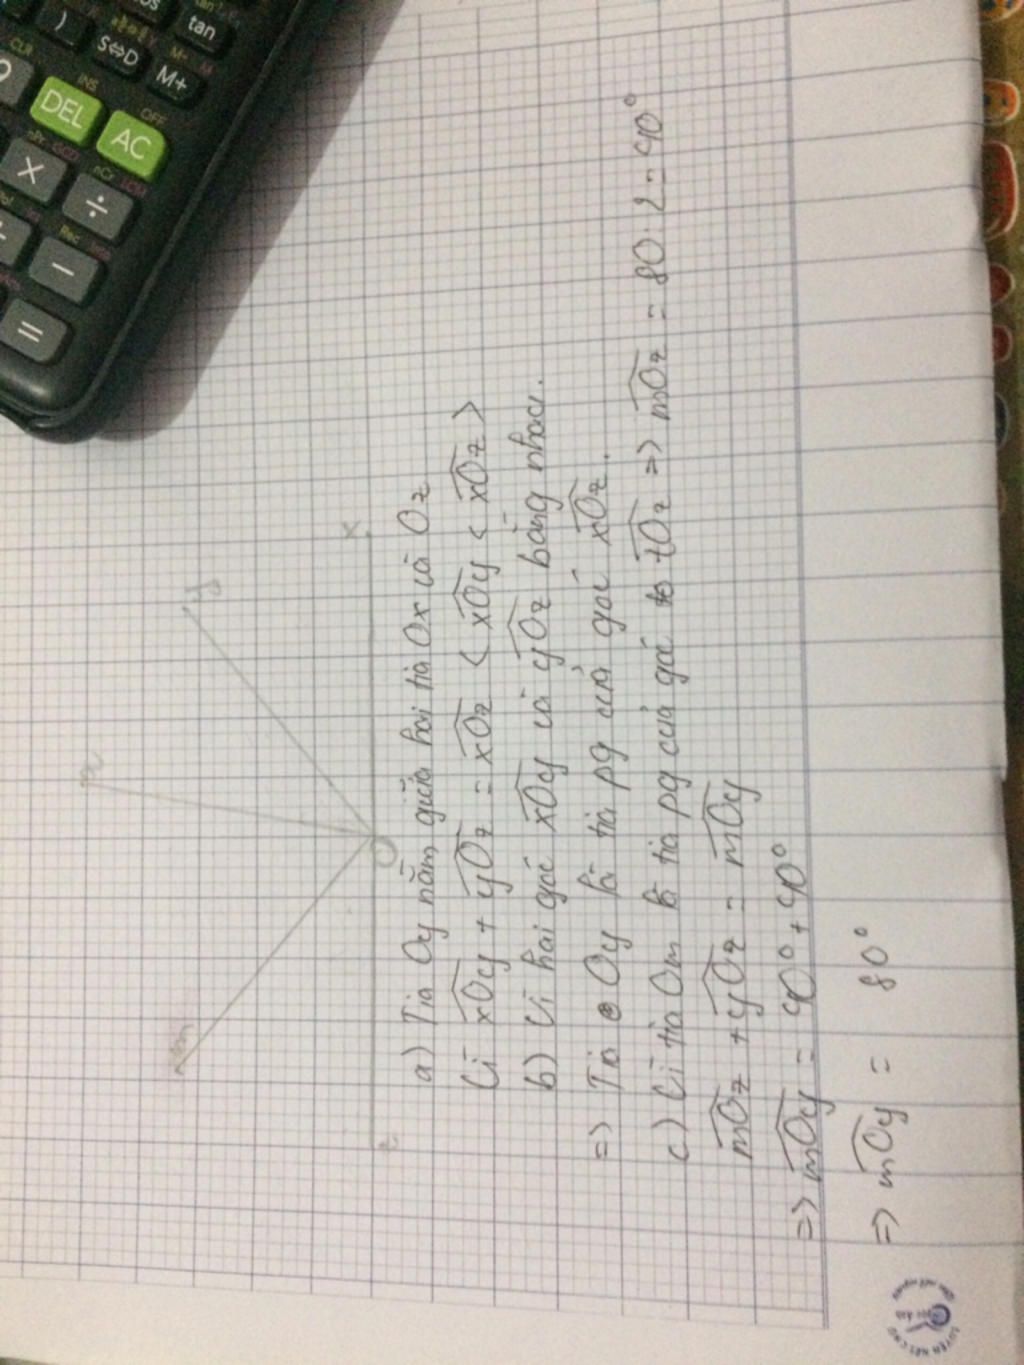 cos
tan
)
S⇔D
M-
M
M+
CLR
INS
OFF
DEL
AC
nPr
GCD
nCr
LCM
×
÷
Pol
Rec
−
=
m
z
y
t
O
x
a) Tia Oy nằm giữa hai tia Ox và Oz
Vì xOy + yOz = xOz ( xOy < xOz )
b) Vì hai góc xOy và yOz bằng nhau.
=> Tia Oy là tia pg của góc xOz.
c) Vì tia Om là tia pg của góc tOz => mOz = 80 : 2 = 40°
mOz + yOz = mOy
=> mOy = 40° + 40°
=> mOy = 80°